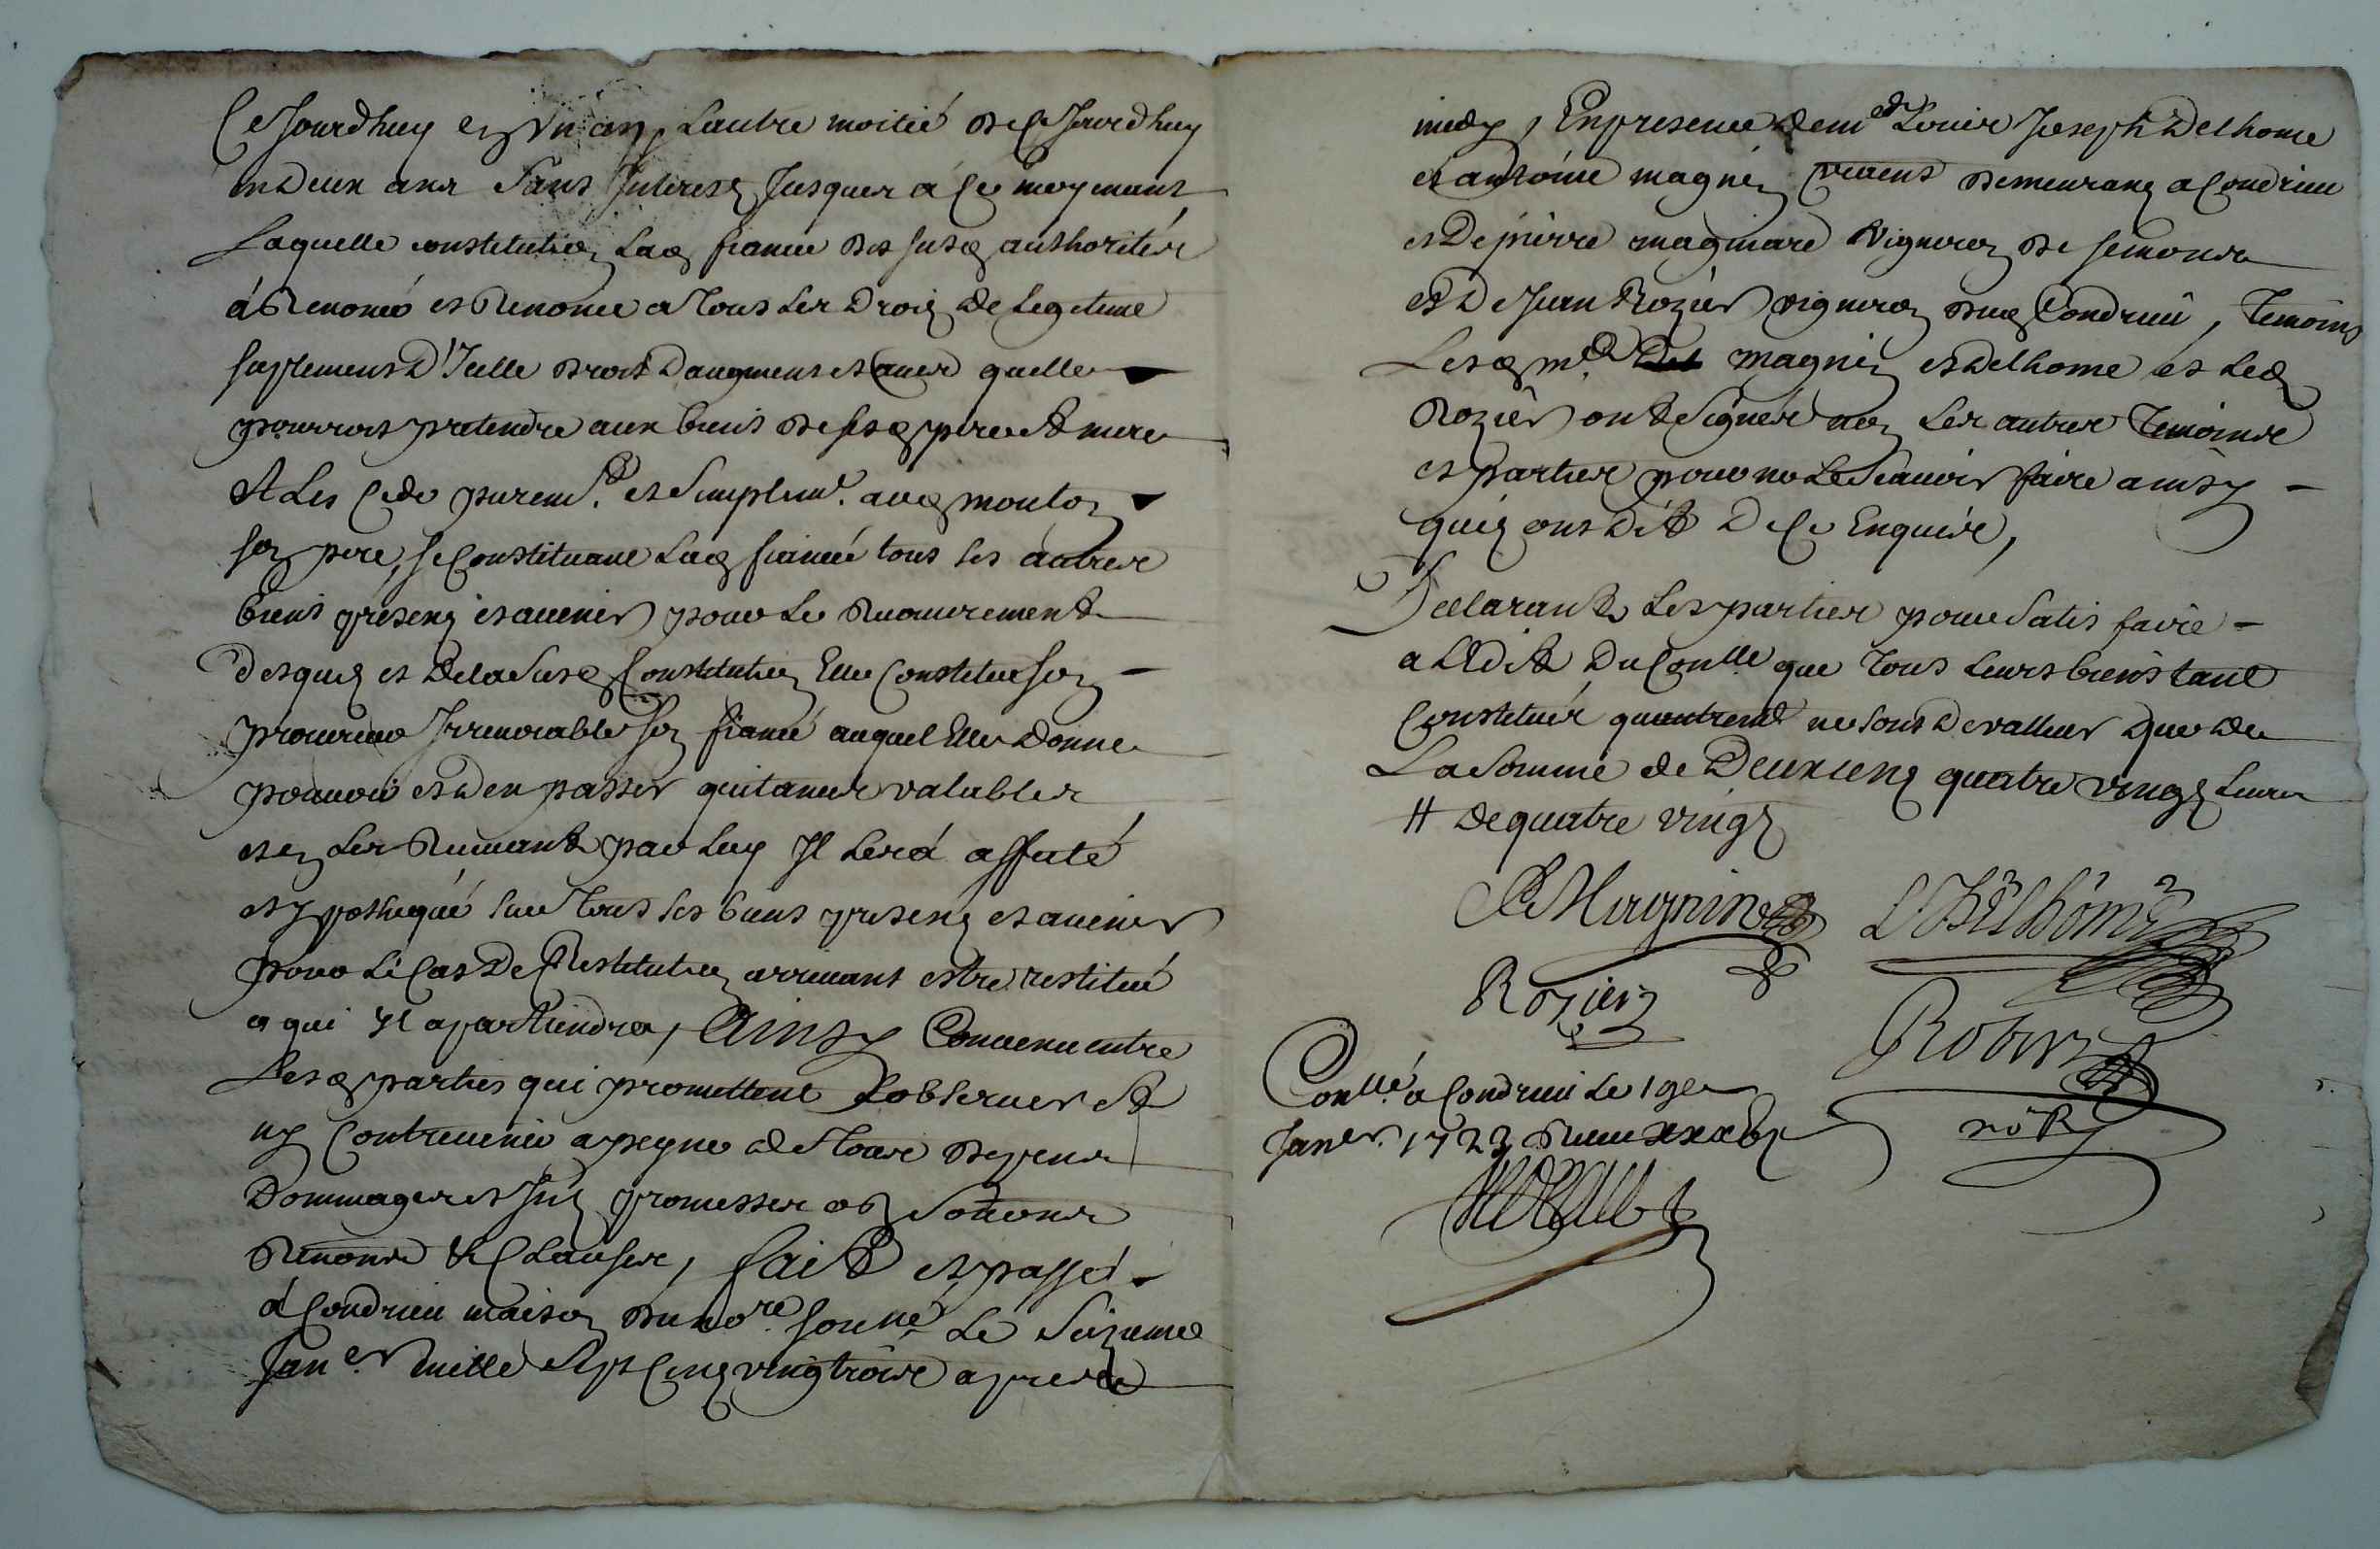 Ce Jourdhuy en Un an, Lautre moitié de Ce Jourdhuy
en Deux ans Sans Interest Jusques á Ce moyenant
Laquelle constitution Lad fiancée des susd authoritée
á Renoncé et Renonce a tous Les Droits de Legitime
suplement D'Icelle droit Daugment et quelle
pourroit pretendre aux biens de sesd pere et mere
Et Les Cede purem.t et Simplem.t aud mouton
son pere, se Constituant Lad fiancée tous ses autres
biens présens et avenir pour Le Recouvrement
desquels et de la Susd Constitution Elle Constitue son
procureur Irrevocable son fiancé auquel Elle Donne
pouvoir et d'en passer quitances valables
et en Les Recevant par Luy Il Sera affecté
et ypothequé sur tous ses biens presens et avenir
pour Le Cas De Restitution arrivant estre restitué
a qui Il apartiendra, Ainsy Convenu entre
Lesd parties qui promettent L'observer Et
ny Contrevenir a peyne de tous depens
Dommages et Int promesses ob
Renon & Clauses, fait et passé
á Condrieu maison du no.re sou.né Le Seizieme
Jan.er mille Sept Cens vingt trois apres
midy, En presence de m Louis Joseph Delhome
et antoine magnin demeurans a Condrieu
et De pierre magniard Vigneron de semons
et De Jean Rozier vigneron dud Condrieu, Temoins
Lesd m magnin et Delhome et Led
Rozier ont Signés non Les autres Temoins
et parties pour ne Le Scavoir faire ainsy
quils ont Dit De Ce Enquis,
Declarant Les parties pour Satisfaire
a L'Edit Du Con.lle que tous Leurs biens tant
Constitués quautrem.t ne sont De valleur que de
La Somme de Deux cens quatre vingt Livres
# de quatre vingt
Magnin L J Delhome
Rozier
Robert
no.re R
Con.llé á Condrieu Le 19e
Jan.er 1723 Receu